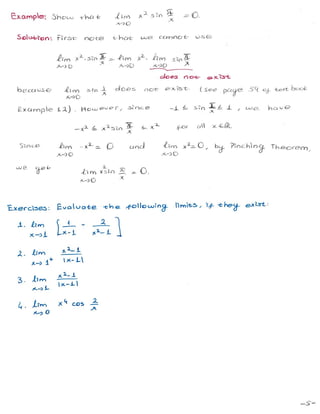 Example: Show that lim x→0 x² sin π/x = 0.
Solution: First note that we cannot use
lim x→0 x² · sin π/x = lim x→0 x² · lim x→0 sin π/x
does not exist
because lim x→0 sin 1/x does not exist (see page 59 of text book
Example 12). However, since -1 ≤ sin π/x ≤ 1, we have
-x² ≤ x² sin π/x ≤ x² for all x∈R.
Since lim x→0 -x² = 0 and lim x→0 x² = 0, by Pinching Theorem,
we get lim x→0 x² sin π/x = 0.
Exercises: Evaluate the following limits, if they exist:
1. lim x→1 [1/x-1 - 2/x²-1]
2. lim x→1⁺ x²-1/|x-1|
3. lim x→1 x²-1/|x-1|
4. lim x→0 x⁴ cos 2/x
-5-